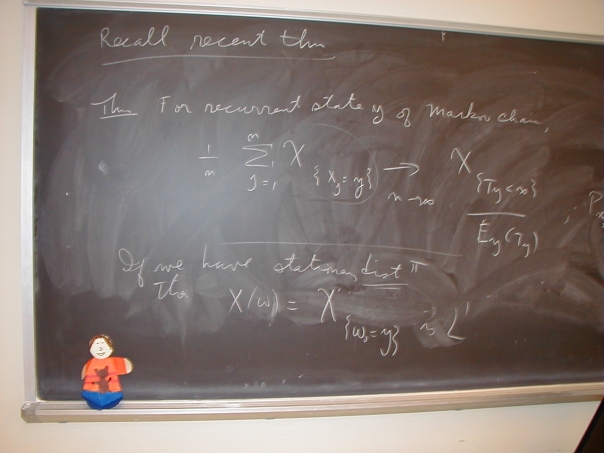 Recall recent thm
Thm For recurrent state y of Markov chain,
1/n ∑_{j=1}^{n} X_{{X_j = y}} →_{n→∞} X_{{T_y < ∞}} / E_y(T_y) , P_x
If we have stationary dist π
The X(ω) = X_{{ω_0 = y}} is L^1